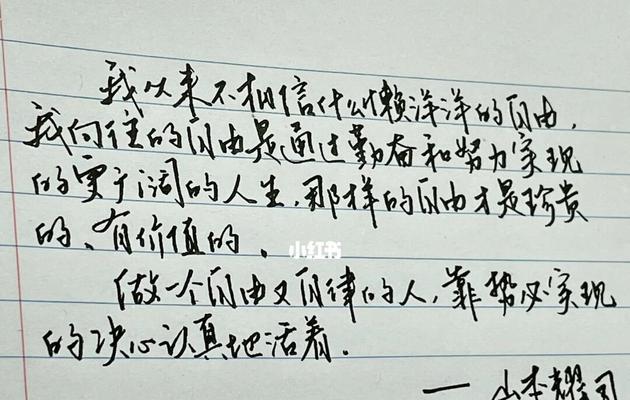 我从来不相信什么懒洋洋的自由，
我向往的自由是通过勤奋和努力实现
的更广阔的人生，那样的自由才是珍贵
的、有价值的。
小红书
做一个自由又自律的人，靠势必实现
的决心认真地活着。
—— 山本耀司